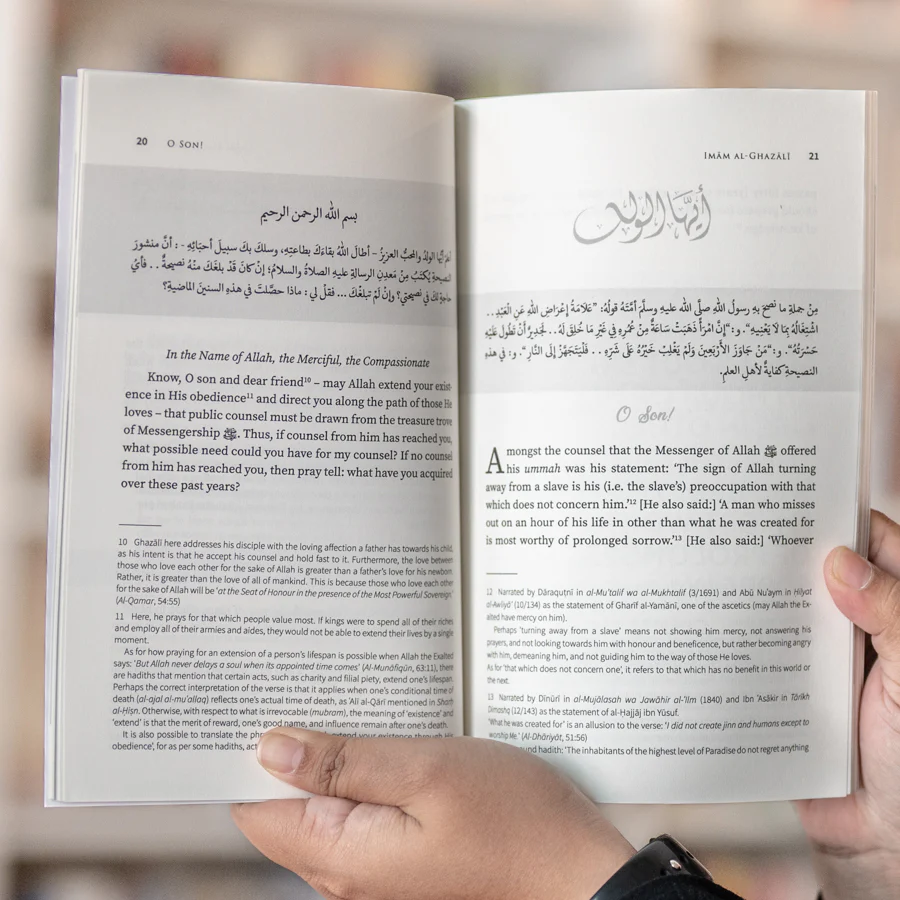 20 O Son!
بسم الله الرحمن الرحيم
أيُّها الولدُ والمحبُّ العزيزُ – أطالَ اللهُ بقاءَكَ بطاعتِهِ، وسلكَ بكَ سبيلَ أحبّائِهِ - : أنَّ منشورَ
النصيحةِ يُكتَبُ مِنْ مَعدِنِ الرسالةِ عليهِ الصلاةُ والسلامُ؛ إنْ كانَ قَدْ بلغَكَ منْهُ نصيحةٌ . . فأيُّ
حاجةٍ لكَ في نصيحتي؟ وإنْ لَمْ تبلغْكَ ... فقلْ لي : ماذا حصَّلتَ في هذهِ السنينَ الماضيةِ؟
In the Name of Allah, the Merciful, the Compassionate
Know, O son and dear friend¹⁰ – may Allah extend your exist-
ence in His obedience¹¹ and direct you along the path of those He
loves – that public counsel must be drawn from the treasure trove
of Messengership ﷺ. Thus, if counsel from him has reached you,
what possible need could you have for my counsel? If no counsel
from him has reached you, then pray tell: what have you acquired
over these past years?
10 Ghazālī here addresses his disciple with the loving affection a father has towards his child,
as his intent is that he accept his counsel and hold fast to it. Furthermore, the love between
those who love each other for the sake of Allah is greater than a father's love for his newborn.
Rather, it is greater than the love of all of mankind. This is because those who love each other
for the sake of Allah will be 'at the Seat of Honour in the presence of the Most Powerful Sovereign.'
(Al-Qamar, 54:55)
11 Here, he prays for that which people value most. If kings were to spend all of their riches
and employ all of their armies and aides, they would not be able to extend their lives by a single
moment.
As for how praying for an extension of a person's lifespan is possible when Allah the Exalted
says: 'But Allah never delays a soul when its appointed time comes' (Al-Munāfiqūn, 63:11), there
are hadiths that mention that certain acts, such as charity and filial piety, extend one's lifespan.
Perhaps the correct interpretation of the verse is that it applies when one's conditional time of
death (al-ajal al-mu'allaq) reflects one's actual time of death, as 'Alī al-Qārī mentioned in Sharḥ
al-Ḥiṣn. Otherwise, with respect to what is irrevocable (mubram), the meaning of 'existence' and
'extend' is that the merit of reward, one's good name, and influence remain after one's death.
It is also possible to translate the phrase extend your existence through His
obedience', for as per some hadiths, act
IMĀM AL-GHAZĀLĪ 21
أَيُّهَا الوَلَدُ
مِنْ جملةِ ما نصَحَ بهِ رسولُ اللهِ صلَّى الله عليهِ وسلَّمَ أمَّتَهُ قولُهُ: ”عَلَامَةُ إِعْرَاضِ اللهِ عَنِ الْعَبْدِ . .
اشْتِغَالُهُ بِمَا لَا يَعْنِيهِ“. و: ”إنَّ امْرَأً ذَهَبَتْ سَاعَةٌ مِنْ عُمُرِهِ فِي غَيْرِ مَا خُلِقَ لَهُ . . لَجَدِيرٌ أَنْ تَطُولَ عَلَيْهِ
حَسْرَتُهُ“. و: ”مَنْ جَاوَزَ الأَرْبَعِينَ وَلَمْ يَغْلِبْ خَيْرُهُ عَلَى شَرِّهِ . . فَلْيَتَجَهَّزْ إِلَى النَّارِ“. و: في هذهِ
النصيحةِ كفايةٌ لأهلِ العلمِ.
O Son!
Amongst the counsel that the Messenger of Allah ﷺ offered
his ummah was his statement: 'The sign of Allah turning
away from a slave is his (i.e. the slave's) preoccupation with that
which does not concern him.'¹² [He also said:] 'A man who misses
out on an hour of his life in other than what he was created for
is most worthy of prolonged sorrow.'¹³ [He also said:] 'Whoever
12 Narrated by Dāraquṭnī in al-Mu'talif wa al-Mukhtalif (3/1691) and Abū Nu'aym in Ḥilyat
al-Awliyā' (10/134) as the statement of Gharīf al-Yamānī, one of the ascetics (may Allah the Ex-
alted have mercy on him).
Perhaps 'turning away from a slave' means not showing him mercy, not answering his
prayers, and not looking towards him with honour and beneficence, but rather becoming angry
with him, demeaning him, and not guiding him to the way of those He loves.
As for 'that which does not concern one', it refers to that which has no benefit in this world or
the next.
13 Narrated by Dīnūrī in al-Mujālasah wa Jawāhir al-'Ilm (1840) and Ibn 'Asākir in Tārīkh
Dimashq (12/143) as the statement of al-Ḥajjāj ibn Yūsuf.
'What he was created for' is an allusion to the verse: 'I did not create jinn and humans except to
worship Me.' (Al-Dhāriyāt, 51:56)
und hadith: 'The inhabitants of the highest level of Paradise do not regret anything